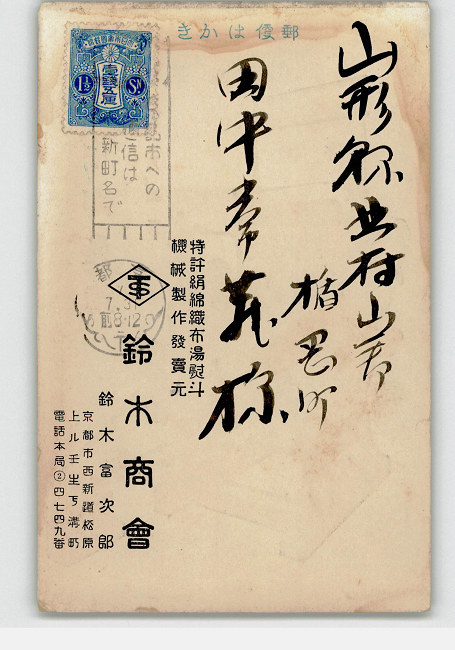 郵便はかき
山形縣北村山郡
楯岡町
田中常茂様
壹錢五厘
1½ Sn
市への
信は
新町名で
都
7.
前8-12
特許絹綿織布湯熨斗
機械製作發賣元
鈴木商會
鈴木富次郎
京都市西新道松原
上ル壬生下溝町
電話本局②四七四九番